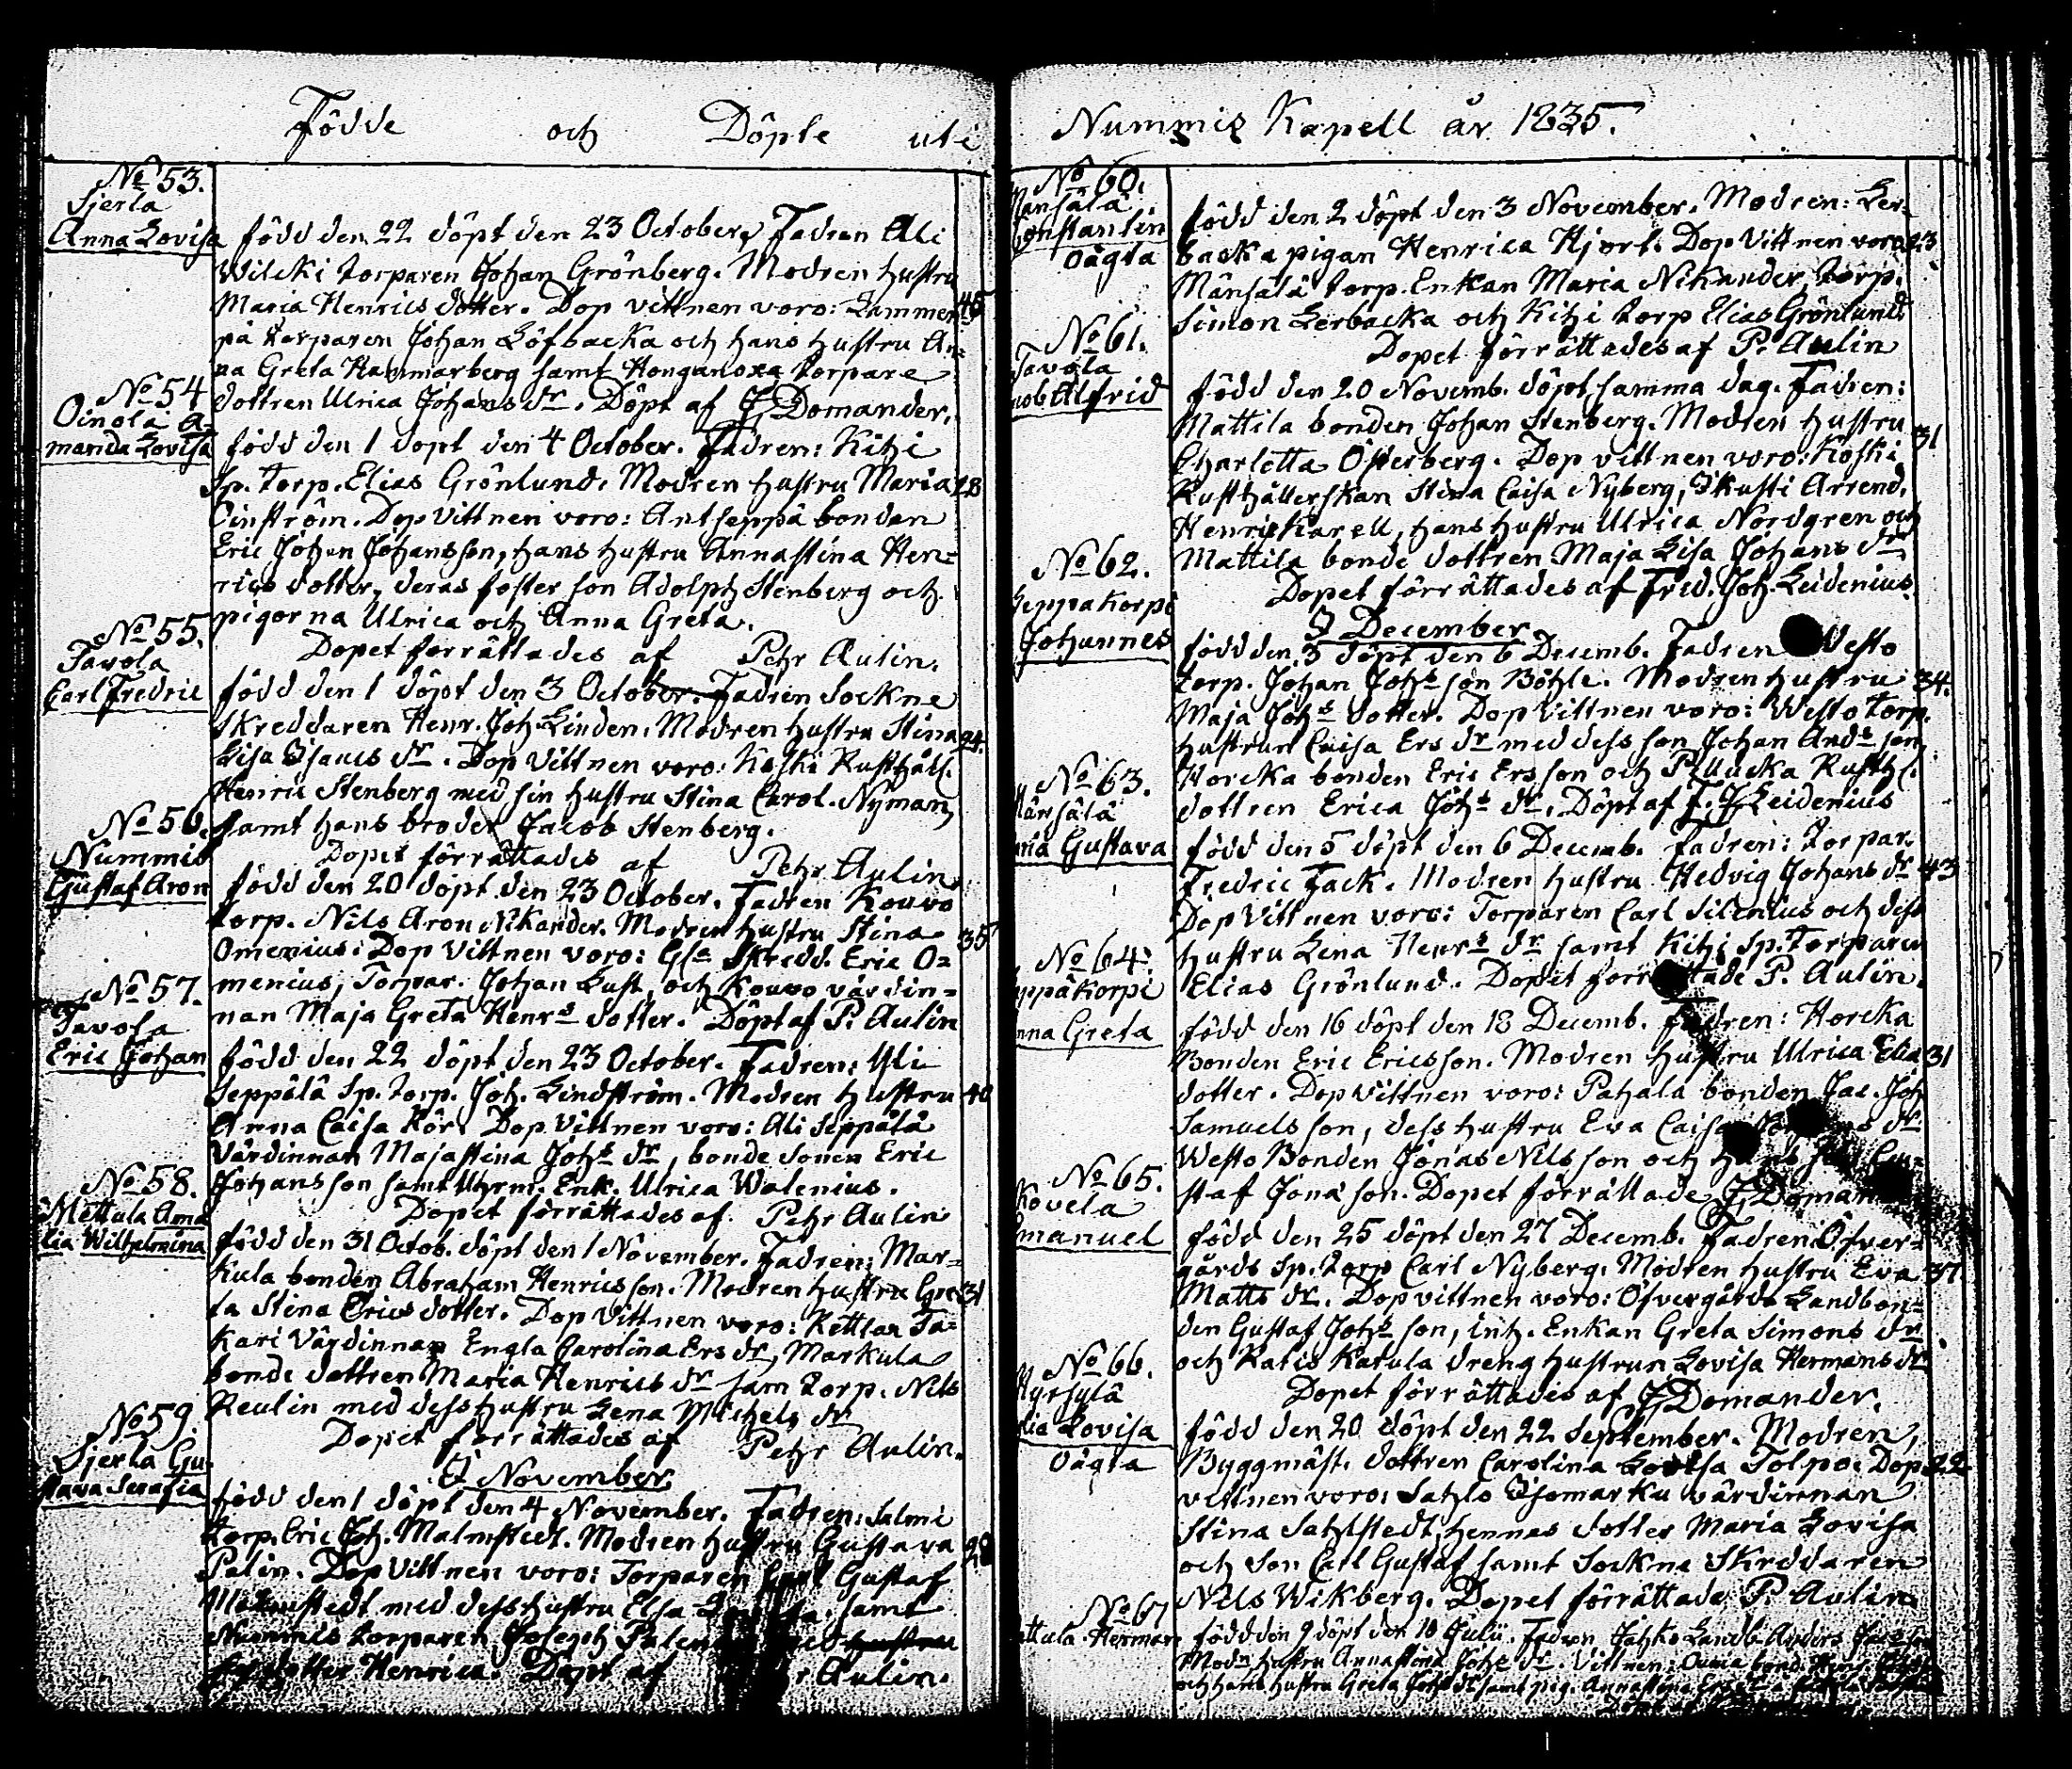 Födde och Döpte uti
No 53.
Sjerla
Anna Lovisa
född den 22 döpt den 23 October, Fadren Ali
Wilcki torparen Johan Grönberg. Modren hustru
Maria Henrics dotter. Dop vittnen voro: Lammen 45
på torparen Johan Löfbacka och hans hustru An=
na Greta Hammarberg samt Honganoxa torpare
dottren Ulrica Johans dr. Döpt af J. Domander.
No 54
Oinola A=
manda Lovisa
född den 1 döpt den 4 October. Fadren: Kitzi
Sp. Torp. Elias Grönlund. Modren hustru Maria 28
Cinström. Dop Vittnen voro: Antseppä bonden
Eric Johan Johansson, hans hustru Annastina Hen=
rics dotter, deras foster son Adolph Stenberg och
pigorna Ulrica och Anna Greta.
Dopet förrättades af Pehr Aulin.
No 55.
Tavola
Carl Fredric
född den 1 döpt den 3 October. Fadren Sockne
Skreddaren Henr. Joh. Linden. Modren hustru Stina 24.
Lisa Isaacs dr. Dop Vittnen voro: Koski Rusthåll.
Henric Stenberg med sin hustru Stina Carol. Nyman
samt hans broder Jacob Stenberg.
Dopet förrättades af Pehr Aulin.
No 56.
Nummis
Gustaf Aron
född den 20 döpt den 23 October. Fadren Kouvo
torp. Nils Aron Nikander. Modren hustru Stina 35
Omenius. Dop Vittnen voro: Skredd. Eric O=
menius, Torpar. Johan Lust, och Kouvo värdin=
nan Maja Greta Henrs dotter. Döpt af P. Aulin
No 57.
Tavola
Eric Johan
född den 22 döpt den 23 October. Fadren: Ali
Seppälä Sp. torp. Joh. Lindström. Modren hustru 40
Anna Caisa Kör. Dop Vittnen voro: Ali Seppälä
Värdinnan Majastina Johs dr, bonde sonen Eric
Johansson samt Enk. Ulrica Walenius.
Dopet förrättades af Pehr Aulin
No 58.
Mettula Ama
lia Wilhelmina
född den 31 Octob. döpt den 1 November. Fadren: Mar=
kula bonden Abraham Henricsson. Modren hustru Gre 31
ta Stina Erics dotter. Dop Vittnen voro: Kettlar Ta=
kari Värdinnan Engla Carolina Ers dr, Markula
bonde dottren Maria Henrics dr sam torp. Nils
Reulin med dess hustru Lena Michels dr
Dopet förrättades af Pehr Aulin.
I November
No 59.
Sjerla Gu=
stava Serafia
född den 1 döpt den 4 November. Fadren: Salmi
torp. Eric Joh. Malmstedt. Modren hustru Gustava 28
Palin. Dop Vittnen voro: Torparen Carl Gustaf
Malmstedt med dess hustru Elsa samt
Nummis torparen Joseph med hustru
dotter Henrica. Döpt af Aulin.
Nummis Kapell år 1835.
No 60.
Mänsälä
Constantin
oägta
född den 2 döpt den 3 November. Modren: Ler=
backa pigan Henrica Hjort. Dop Vittnen voro 23
Mänsälä torp. Enkan Maria Nikander, torp.
Simon Lerbacka och Kitzi torp Elias Grönlund
Dopet förrättades af P. Aulin
No 61.
Tavola
Alfrid
född den 20 Novemb. döpt samma dag. Fadren:
Mattila bonden Johan Stenberg. Modren hustru 31
Charlotta Österberg. Dop vittnen voro: Koski
Rusthållerskan Stina Caisa Nyberg, Arrend.
Henric Karell, hans hustru Ulrica Nordgren och
Mattila bonde dottren Maja Lisa Johans dr
Dopet förrättades af Fred. Joh. Leidenius.
I December
No 62.
Seppäkorpi
Johannes
född den 3 döpt den 6 Decemb. Fadren Westo
torp. Johan Johs son Böhle. Modren hustru 34.
Maja Johs dotter. Dop Vittnen voro: Westo torp.
hustrun Caisa Ers dr med dess son Johan Ands son,
Horcka bonden Eric Ersson och Rusth.
dottren Erica Johs dr. Döpt af F. J. Leidenius
No 63.
Mänsälä
Gustava
född den 5 döpt den 6 Decemb. Fadren: torpar.
Fredric Fack. Modren hustru Hedvig Johans dr 43
Dop Vittnen voro: Torparen Carl Silenius och dess
hustru Lena Henrs dr samt Kitzi Sp. Torparen
Elias Grönlund. Dopet förrättade P. Aulin.
No 64.
Seppäkorpi
Anna Greta
född den 16 döpt den 18 Decemb. Fadren: Horcka
Bonden Eric Ericsson. Modren hustru Ulrica Elia 31
dotter. Dop vittnen voro: Pahala bonden Jac. Joh
Samuelsson, dess hustru Eva Caisa dr
Westo Bonden Jonas Nilsson och
staf Jonason. Dopet förrättade J. Doman
No 65.
Kovela
Emanuel
född den 25 döpt den 27 Decemb. Fadren Öfver=
gårds Sp. Torp Carl Nyberg. Modren hustru Eva 37
Matts dr. Dop vittnen voro: Öfvergårds Landbon=
den Gustaf Johs son, inh. Enkan Greta Simons dr
och Ratis Katula dreng hustrun Lovisa Hermans dr
Dopet förrättades af J. Domander.
No 66.
Hyrsylä
Lovisa
oägta
född den 20 döpt den 22 September. Modren,
Byggmäst. dottren Carolina Lovisa Tolpo. Dop 22
vittnen voro: Satzlo Isomarku värdinnan
Stina Sahlstedt, hennes dotter Maria Lovisa
och son Carl Gustaf samt Sockne Skreddaren
Nils Wikberg. Dopet förrättade P. Aulin.
No 67
Herman
född den 9 döpt den 10 Julii. Fadren Landb. Anders
Modn hustru Annastina Johs dr. Vittnen:
och hans hustru Greta Johs dr samt pig. Annastina